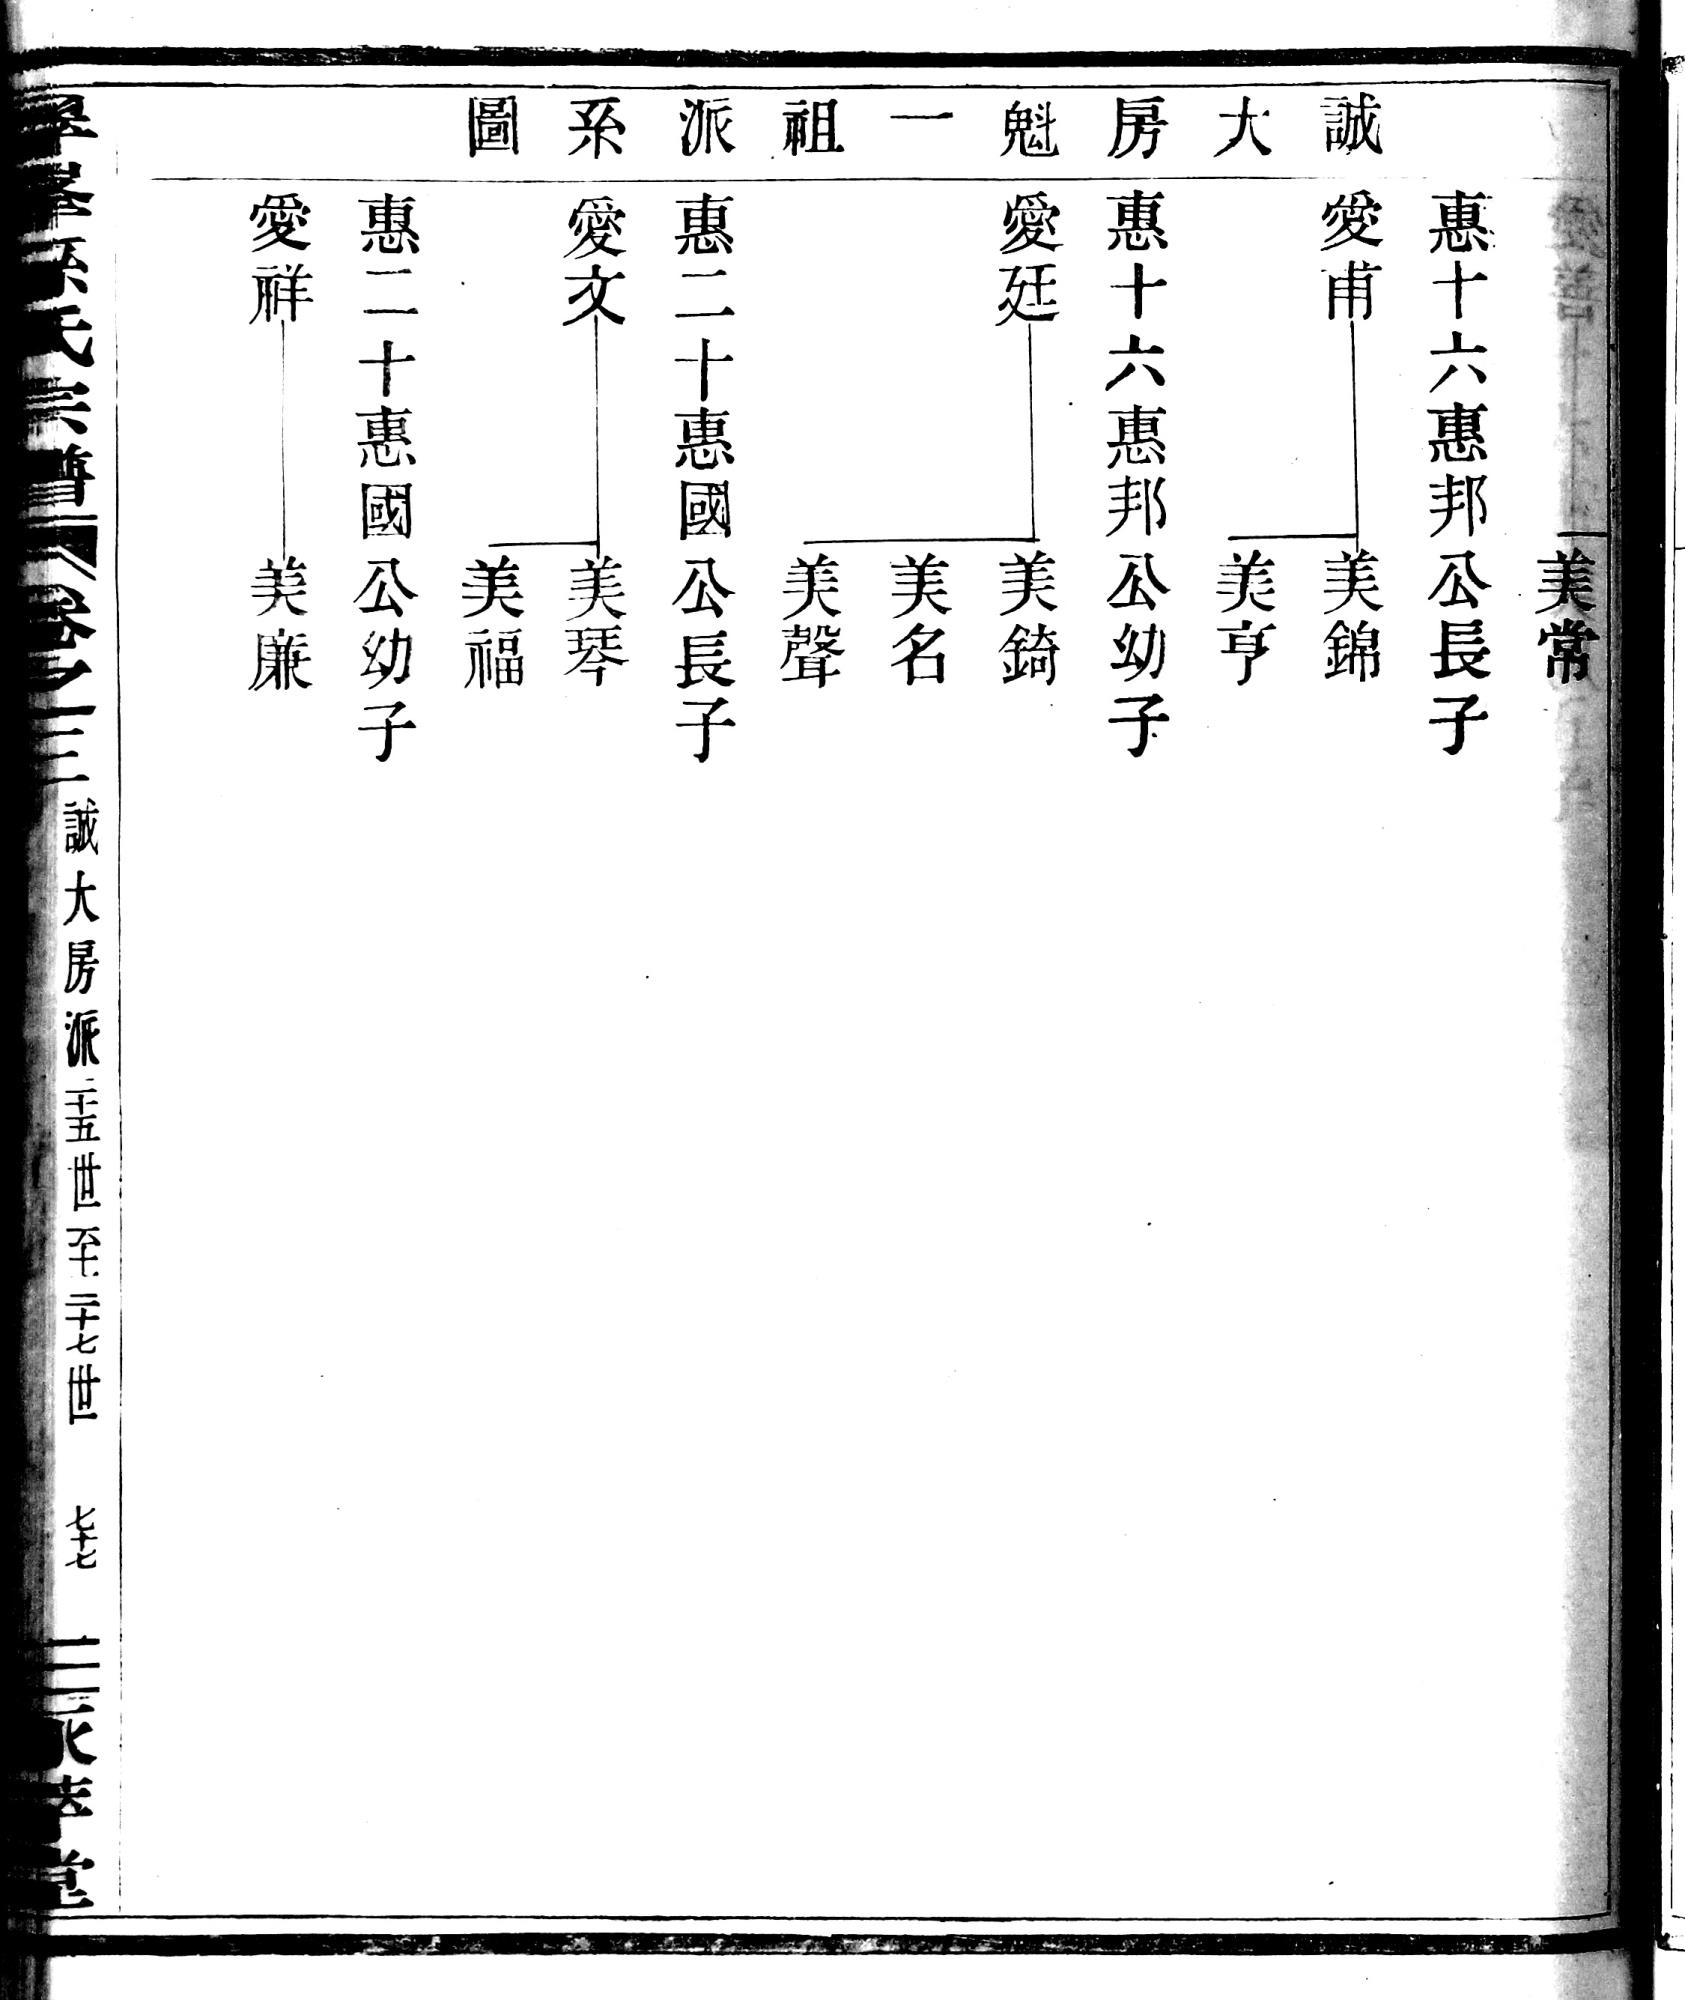 誠大房魁一祖派系圖
美常
惠十六惠邦公長子
愛甫
美錦
美亨
惠十六惠邦公幼子
愛廷
美錡
美名
美聲
惠二十惠國公長子
愛文
美琴
美福
惠二十惠國公幼子
愛祥
美廉
氏宗譜
卷之三
誠大房派二十五世至二十七世
七十七
堂